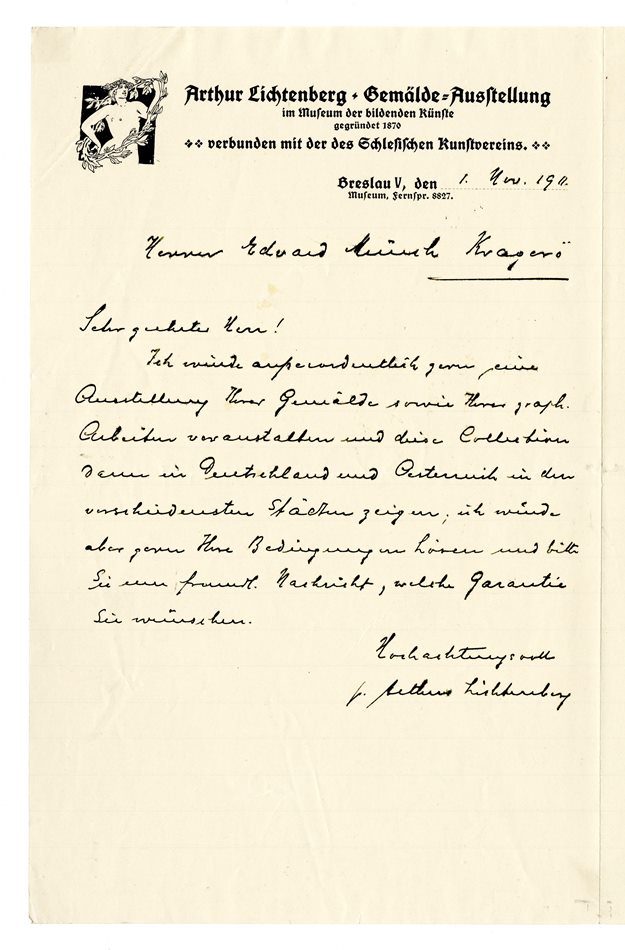 Arthur Lichtenberg • Gemälde-Ausstellung
im Museum der bildenden Künste
gegründet 1870
verbunden mit der des Schlesischen Kunstvereins.
Breslau V, den 1. Nov. 1911.
Museum, Fernspr. 8827.
Herrn Edvard Münch Kragerö
Sehr geehrter Herr!
Ich würde außerordentlich gern eine
Ausstellung Ihrer Gemälde sowie Ihrer graph.
Arbeiten veranstalten und diese Collection
dann in Deutschland und Oesterreich in den
verschiedensten Städten zeigen; ich würde
aber gern Ihre Bedingungen hören und bitte
Sie um freundl. Nachricht, welche Garantie
Sie wünschen.
Hochachtungsvoll
p. Arthur Lichtenberg